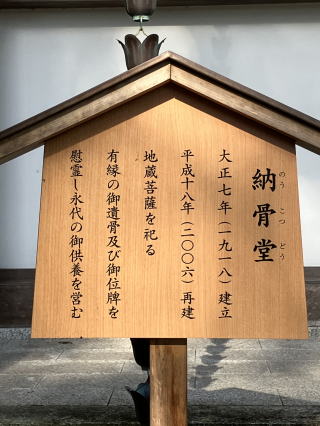 納骨堂
のうこつどう
大正七年（一九一八）建立
平成十八年（二〇〇六）再建
地蔵菩薩を祀る
有縁の御遺骨及び御位牌を
慰霊し永代の御供養を営む